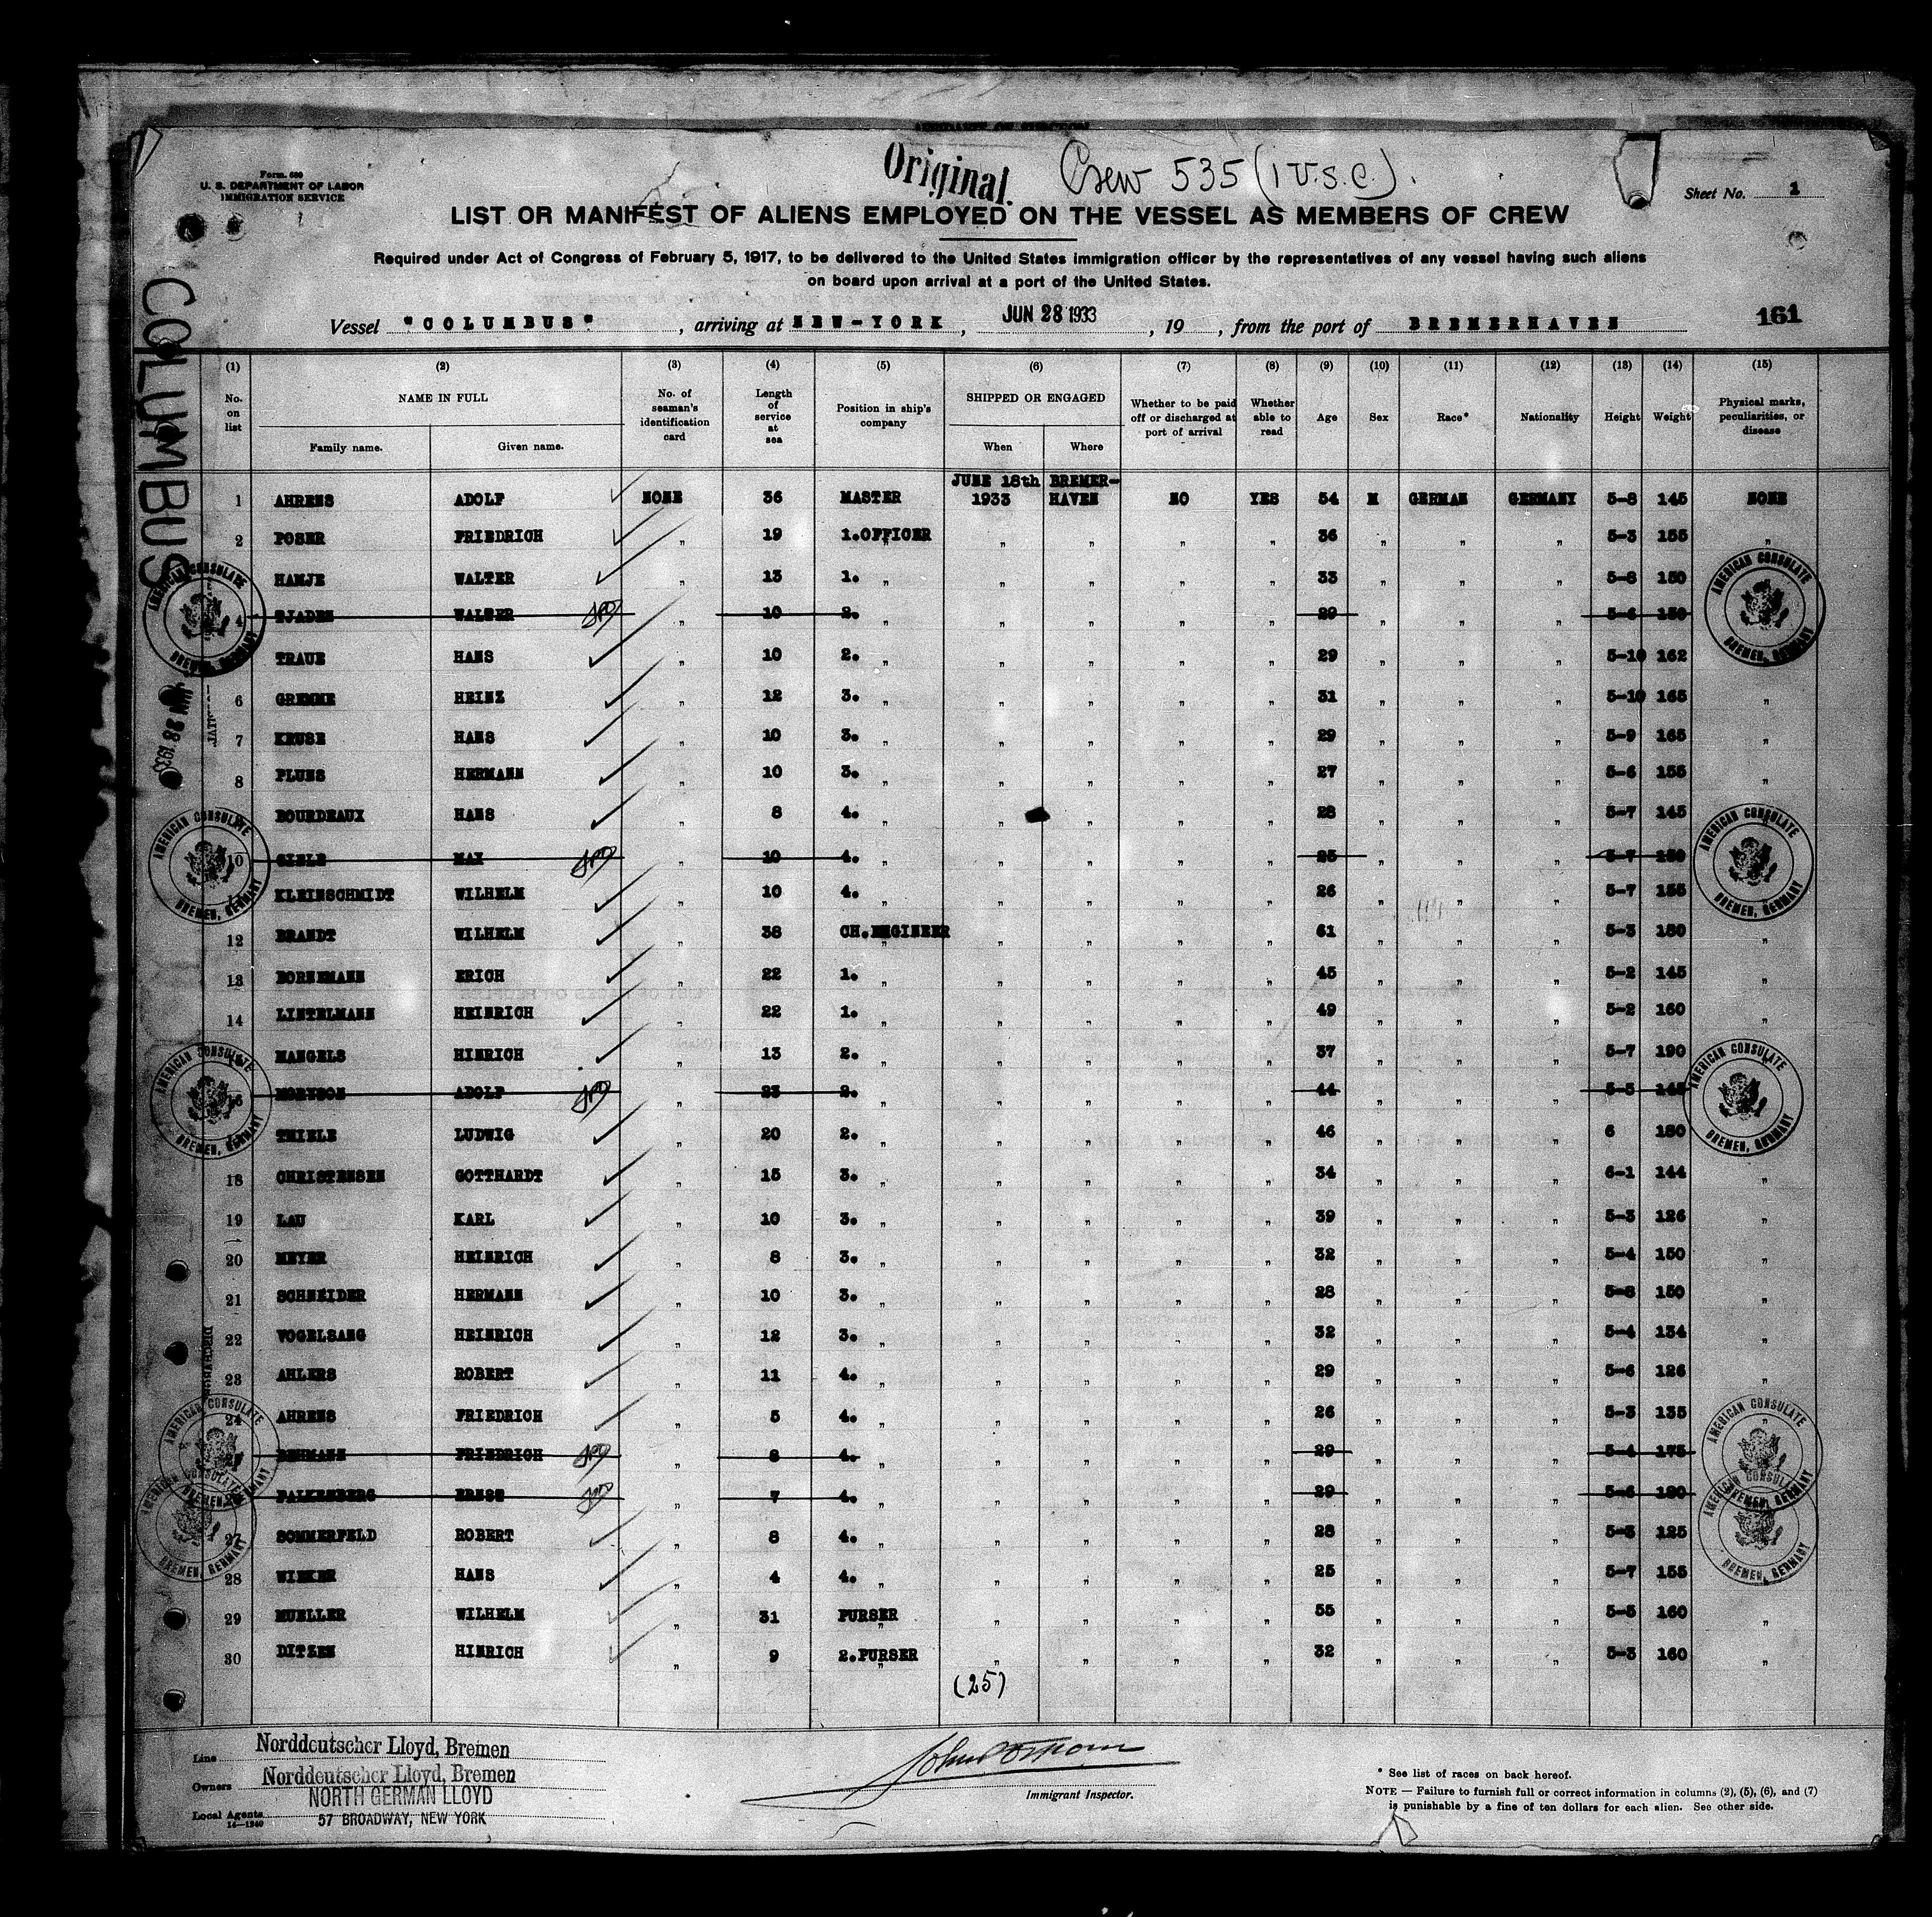 Original.
Crew 535 (1 U.S.C.).
Form 680
U. S. DEPARTMENT OF LABOR
IMMIGRATION SERVICE
Sheet No. 1
LIST OR MANIFEST OF ALIENS EMPLOYED ON THE VESSEL AS MEMBERS OF CREW
Required under Act of Congress of February 5, 1917, to be delivered to the United States immigration officer by the representatives of any vessel having such aliens
on board upon arrival at a port of the United States.
Vessel "COLUMBUS", arriving at NEW-YORK, JUN 28 1933, 19 , from the port of BREMERHAVEN
161
COLUMBUS
(1) (2) (3) (4) (5) (6) (7) (8) (9) (10) (11) (12) (13) (14) (15)
No. on list
NAME IN FULL
Family name. Given name.
No. of seaman's identification card
Length of service at sea
Position in ship's company
SHIPPED OR ENGAGED
When Where
Whether to be paid off or discharged at port of arrival
Whether able to read
Age
Sex
Race*
Nationality
Height
Weight
Physical marks, peculiarities, or disease
1 AHRENS ADOLF NONE 36 MASTER JUNE 18th 1933 BREMER-HAVEN NO YES 54 M GERMAN GERMANY 5-8 145 NONE
2 POSER FRIEDRICH " 19 1.OFFICER " " " " 36 " " " 5-3 155 "
HAMJE WALTER " 13 1. " " " " " 33 " " " 5-8 150
4 TJADEN WALTER " 10 2. " " " " " 29 " " " 5-6 150
TRAUE HANS " 10 2. " " " " " 29 " " " 5-10 162
6 GREMME HEINZ " 12 3. " " " " " 31 " " " 5-10 165 "
7 KRUSE HANS " 10 3. " " " " " 29 " " " 5-9 165 "
8 PLUNS HERMANN " 10 3. " " " " " 27 " " " 5-6 155 "
BOURDEAUX HANS " 8 4. " " " " " 28 " " " 5-7 145
10 MAX " 10 4. " " " " " 25 " " " 5-7 150
KLEINSCHMIDT WILHELM " 10 4. " " " " " 26 " " " 5-7 155
12 BRANDT WILHELM " 38 CH.ENGINEER " " " " 61 " " " 5-3 150 "
13 BORNEMANN ERICH " 22 1. " " " " " 45 " " " 5-2 145 "
14 LINTELMANN HEINRICH " 22 1. " " " " " 49 " " " 5-2 160 "
MANGELS HINRICH " 13 2. " " " " " 37 " " " 5-7 190
16 ADOLF " 23 2. " " " " " 44 " " " 5-5 145
THIELE LUDWIG " 20 2. " " " " " 46 " " " 6 180
18 CHRISTENSEN GOTTHARDT " 15 3. " " " " " 34 " " " 6-1 144 "
19 LAU KARL " 10 3. " " " " " 39 " " " 5-3 126 "
20 MEYER HEINRICH " 8 3. " " " " " 32 " " " 5-4 150 "
21 SCHNEIDER HERMANN " 10 3. " " " " " 28 " " " 5-8 150 "
22 VOGELSANG HEINRICH " 12 3. " " " " " 32 " " " 5-4 134 "
23 AHLERS ROBERT " 11 4. " " " " " 29 " " " 5-6 126 "
24 AHRENS FRIEDRICH " 5 4. " " " " " 26 " " " 5-3 135 "
FRIEDRICH " 8 4. " " " " " 29 " " " 5-4 175
FALKENBERG ERNST " 7 4. " " " " " 29 " " " 5-6 180
27 SOMMERFELD ROBERT " 8 4. " " " " " 28 " " " 5-3 125
28 WINKER HANS " 4 4. " " " " " 25 " " " 5-7 155
29 MUELLER WILHELM " 31 PURSER " " " " 55 " " " 5-5 160 "
30 DITZEN HINRICH " 9 2.PURSER " " " " 32 " " " 5-3 160 "
(25)
AMERICAN CONSULATE
BREMEN, GERMANY
AMERICAN CONSULATE
BREMEN, GERMANY
AMERICAN CONSULATE
BREMEN, GERMANY
AMERICAN CONSULATE
BREMEN, GERMANY
AMERICAN CONSULATE
BREMEN, GERMANY
AMERICAN CONSULATE
BREMEN, GERMANY
AMERICAN CONSULATE
BREMEN, GERMANY
AMERICAN CONSULATE
BREMEN, GERMANY
AMERICAN CONSULATE
BREMEN, GERMANY
AMERICAN CONSULATE
BREMEN, GERMANY
JUN 28 1933
Line Norddeutscher Lloyd, Bremen
Owners Norddeutscher Lloyd, Bremen
NORTH GERMAN LLOYD
Local Agents 57 BROADWAY, NEW YORK
14—1240
Immigrant Inspector.
* See list of races on back hereof.
NOTE — Failure to furnish full or correct information in columns (2), (5), (6), and (7)
is punishable by a fine of ten dollars for each alien. See other side.